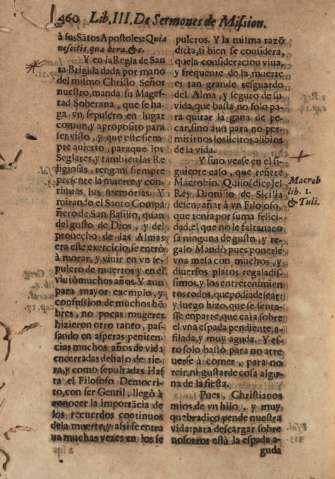 460 Lib. III. De Sermones de Mission.
à sus Sãtos Apostoles: Quia
nescitis qua hora. &c.
Y en la Regla de San
ta Brigida dada por mano
del mismo Christo Señor
nuestro, manda su Mages
tad Soberana, que se ha-
ga vn sepulcro en lugar
comun, y aproposito para
ser visto, y que este siem-
pre auierto, para que los
Seglares, y tambien las Re
ligiosas, tengan siempre
presente la muerte, y con-
tinuas sus memorias. Y
mirando el Santo Compa
ñero de San Basilio, quan
del gusto de Dios, y del
prouecho de las Almas
era este exercicio, se entrò
à morar, y viuir en vn se-
pulcro de muertos y en èl
viuiò muchos años. Y aun
para mayor exemplo, y
confusion de muchos hõ-
bres, no pocas mugeres
hizieron otro tanto, pas-
sando en asperas peniten-
cias muchos años de vida
encerradas debaxo de tie-
rra, y como sepultadas. Has
ta el Filosofo Democri-
to, con ser Gentil, llegò à
conocer la importãcia de
los recuerdos continuos
de la muerte, y assi se entra
ua muchas vezes en los se
pulcros. Y la misma razõ
dicta, si bien se considera,
que la consideracion viua,
y frequente de la muerte
es tan grande resguardo
del Alma, y seguro de su
vida, que basta no solo pa-
ra quitar la gana de pe-
car, sino aun para no per-
mitirnos los licitos aliuios
de la vida.
Y sino vease en el si-
guiente caso, que refiere
Macrobio. Quiso (dize) el
Rey Dionisio de Sicilia
desengañar à vn Filosofo,
que tenia por suma felici-
dad el que no le faltara co-
sa ninguna de gusto, y re-
galo. Mandò pues ponerle
vna mesa con muchos, y
diuersos platos regaladis-
simos, y los entretenimien
tos todos, que podia desear:
y luego hizo, que se sentas-
se en parte, que caia sobre
èl vna espada pendiente, a-
filada, y muy aguda. Y es-
to solo bastò para no atre
uerse à comer, para no
reir, ni gustar de cosa algu-
na de la fiesta.
Pues, Christianos
mios de vn hijo, y muy
quebradiço pende nuestra
vida; para descargar sobre
nosotros està la espada a-
guda
Macrob
lib. 1.
& Tuli.